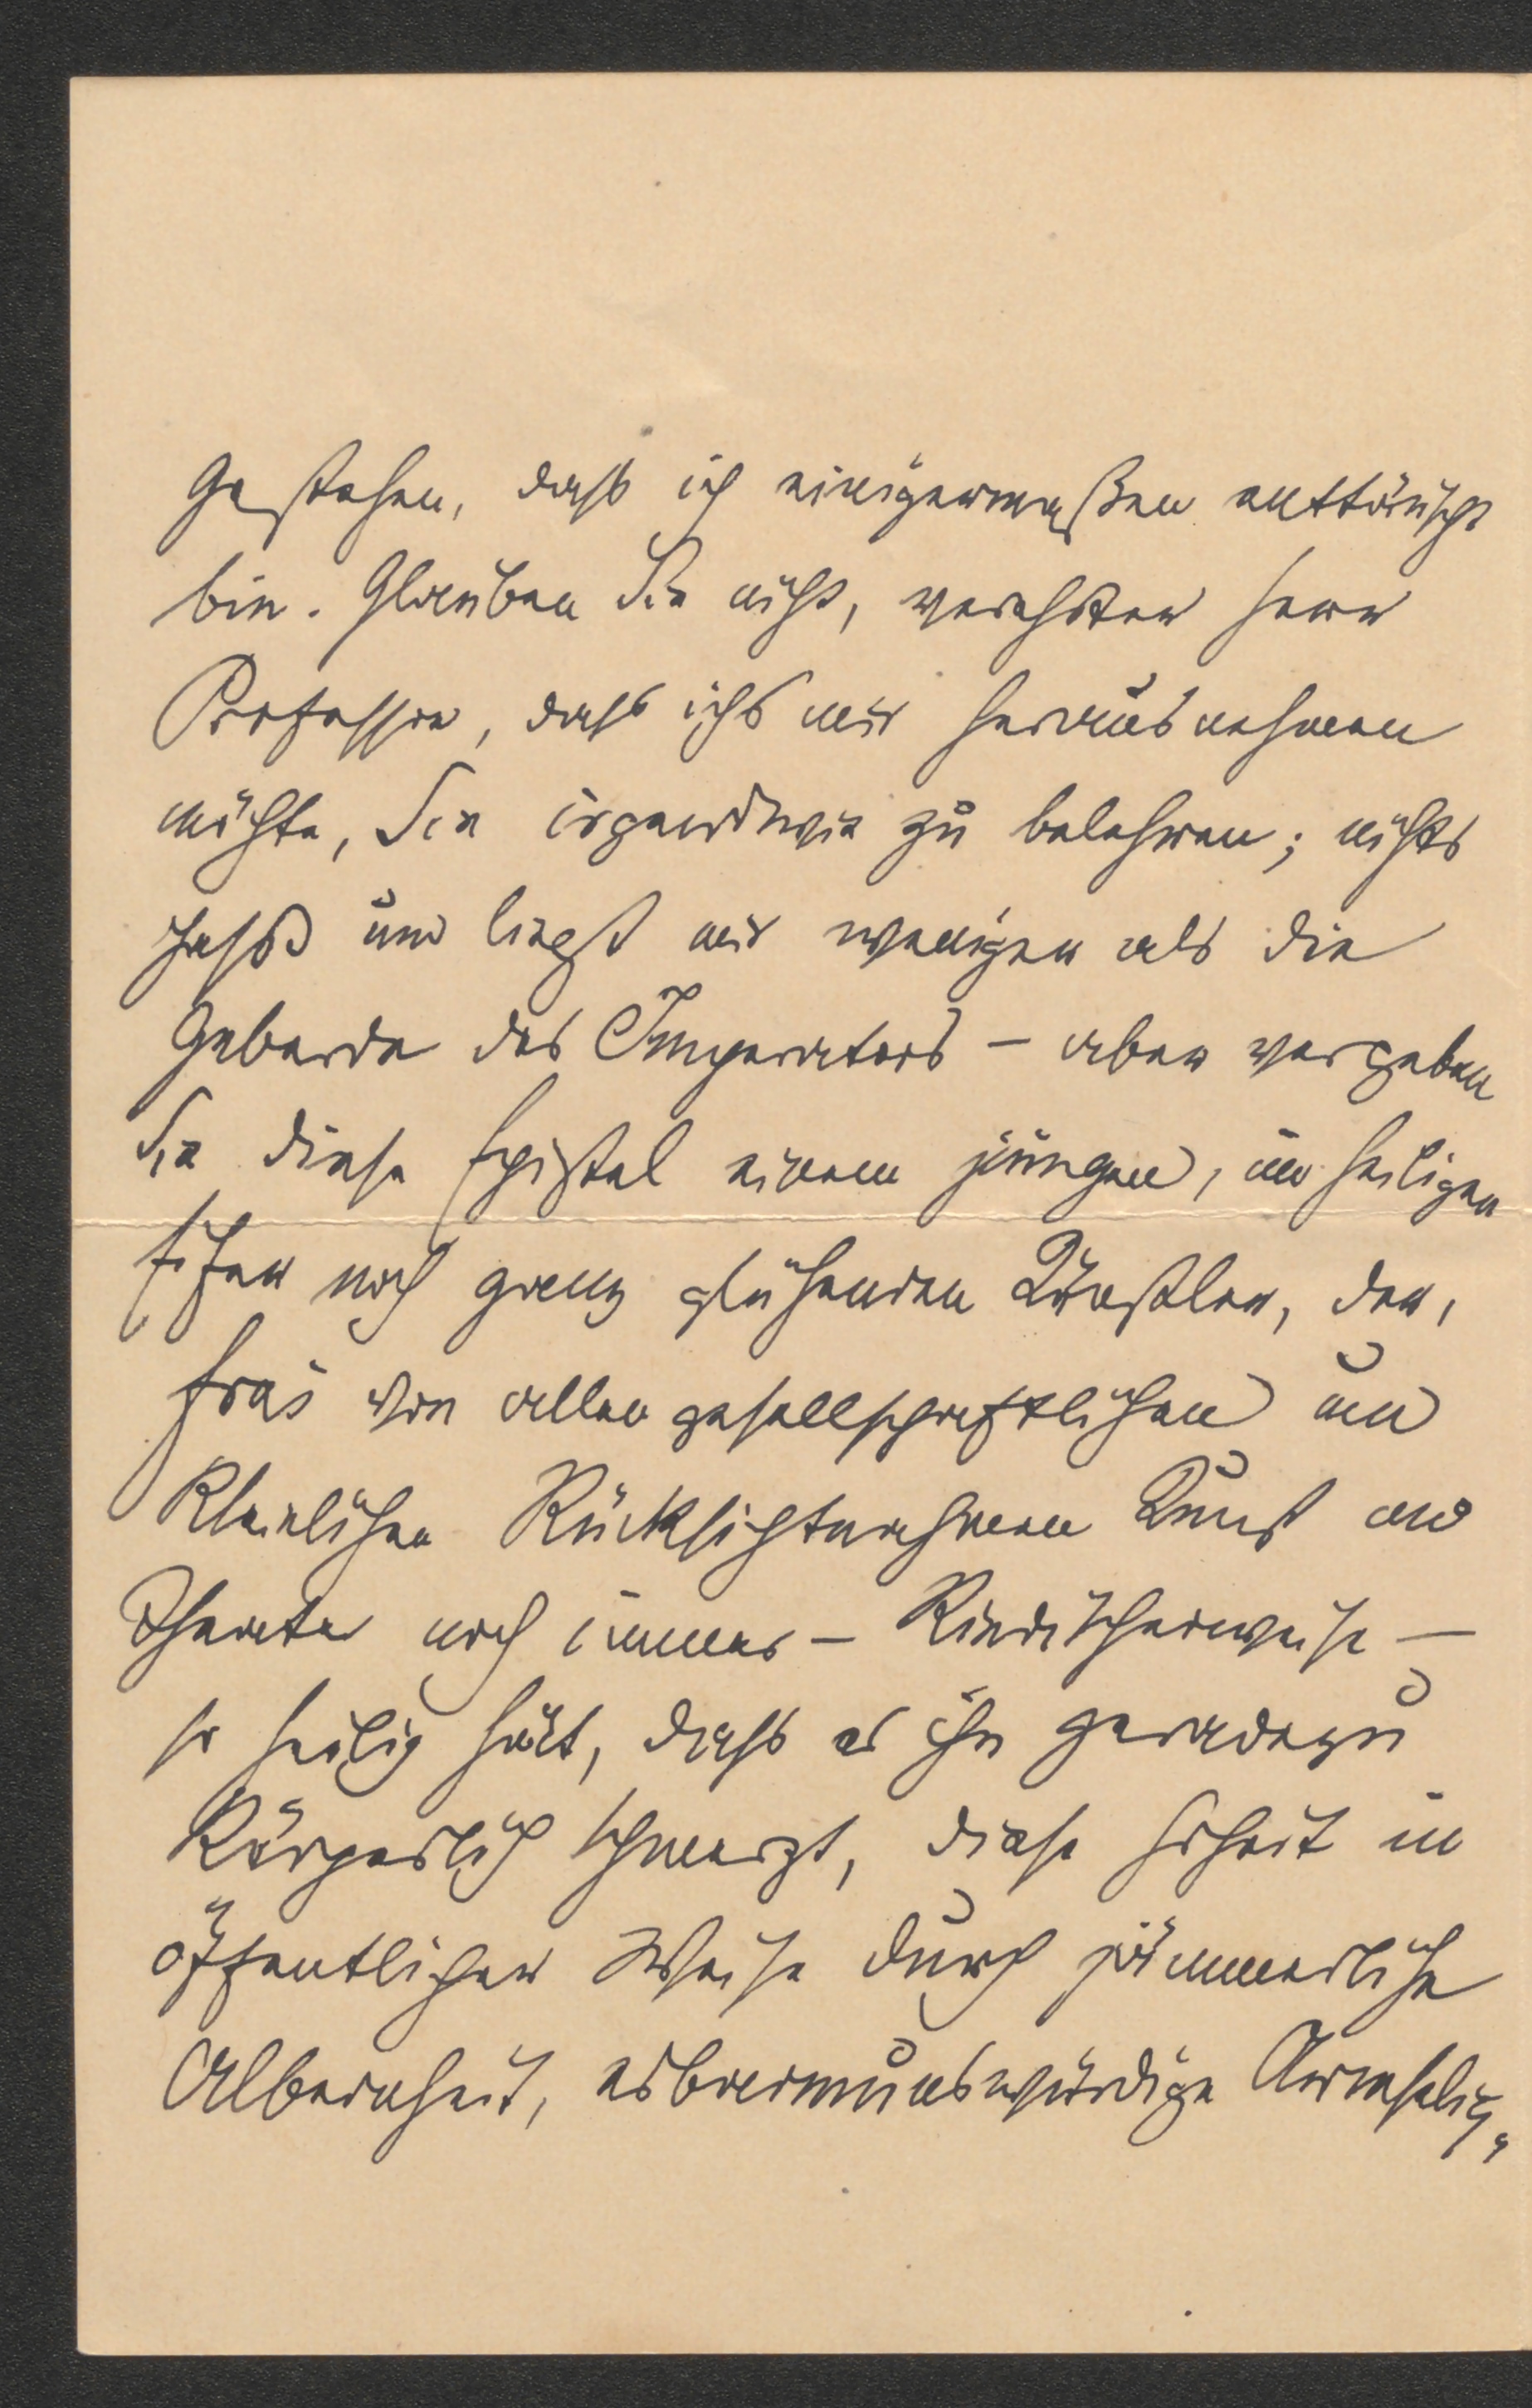 Gestehen, dass ich einigermaßen enttäuscht
bin. Glauben Sie nicht, verehrter Herr
Professor, dass ichs mir herausnehmen
möchte, Sie irgendwie zu belehren; nichts
passt und liegt mir weniger als die
Geberde des Imperators – aber vergeben
Sie diese Epistel einem jungen, im heiligen
Eifer noch ganz glühenden Künstler, der,
frei von allen gesellschaftlichen und
kleinlichen Rücksichtnahmen Kunst und
Theater noch immer – kindischerweise –
so heilig hält, dass es ihn geradezu
körperlich schmerzt, diese Hoheit in
öffentlicher Weise durch jämmerliche
Albernheit, erbarmungswürdige Armselig-